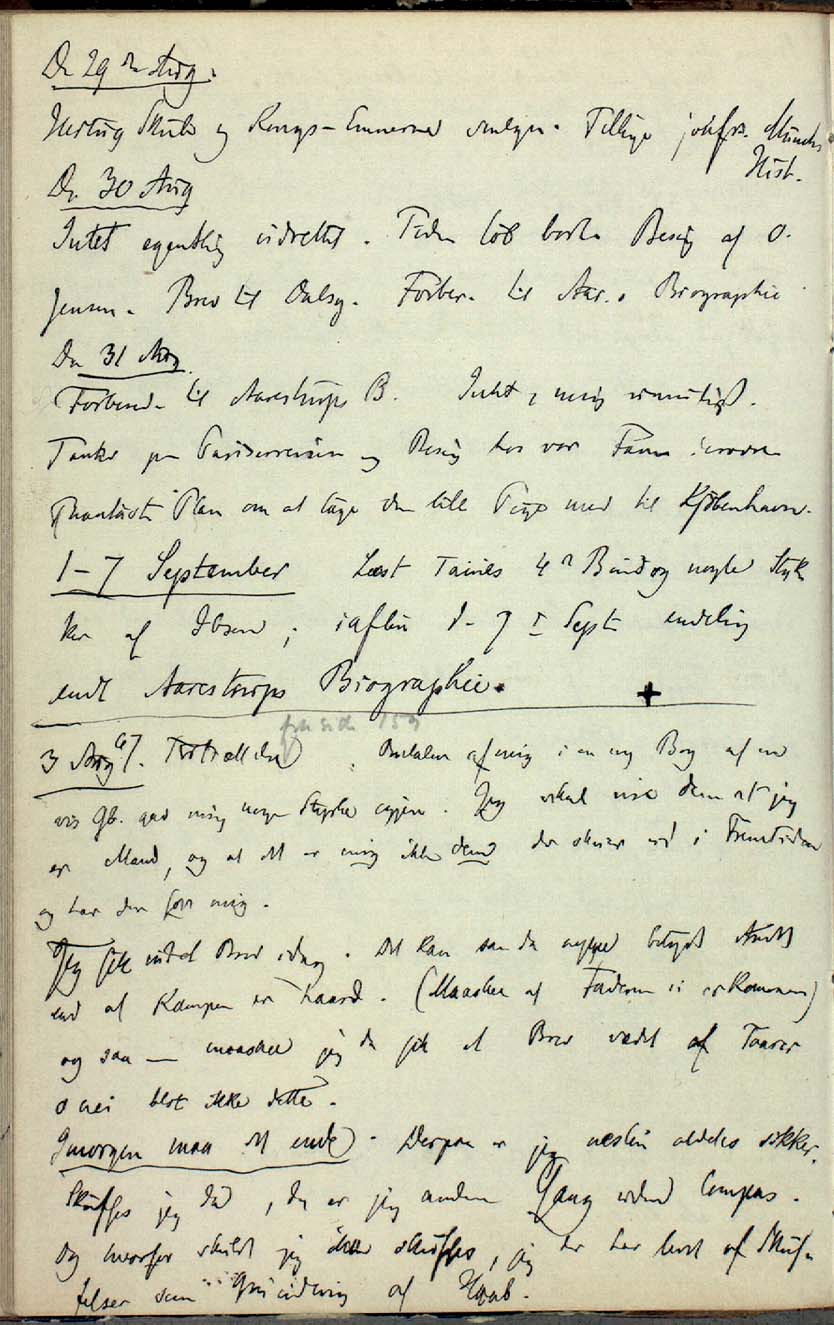 Dn 29de Aug.
Hertug Skule og Kongs-Emnerne Tillige Munchs
Hist.
Dn 30 Aug
Intet egentlig udrettet. Tiden løb bort. Besøg af O.
Jensen. Brev til Forber. til Aar.s Biographie
Dn 31 Aug.
Forbered. til Aarestrups B. Intet
Tanker paa Pariserreisen og Besøg hos vor
Plan om at tage den lille Pige med til Kjøbenhavn.
1-7 September Læst Taines 4e Bind og nogle Styk
ker af Ibsen; iaften d. 7 Sept endelig
endt Aarestrups Biographie.
fra side 159
3 Aug 67. Fortvivlelse. Omtalen af mig i en ny Bog af en
vis Gb. gav mig nogen Styrke igjen. Jeg skal vise dem at jeg
er Mand, og at det er mig ikke dem der skriver ud i Fremtiden
og har den for mig.
Jeg fik intet Brev idag. Det kan saa da neppe betyde Andet
end at Kampen er haard. (Maaskee at Faderen ei er kommen)
og saa — maaskee jeg da fik et Brev vædet af Taarer
o nei blot ikke dette.
Imorgen maa det ende. Derpaa er jeg næsten aldeles sikker.
Skuffes jeg da, da er jeg anden Gang uden Compas.
Og hvorfor skulde jeg ikke skuffes, jeg der har levet af Skuf-
felser som af Haab.